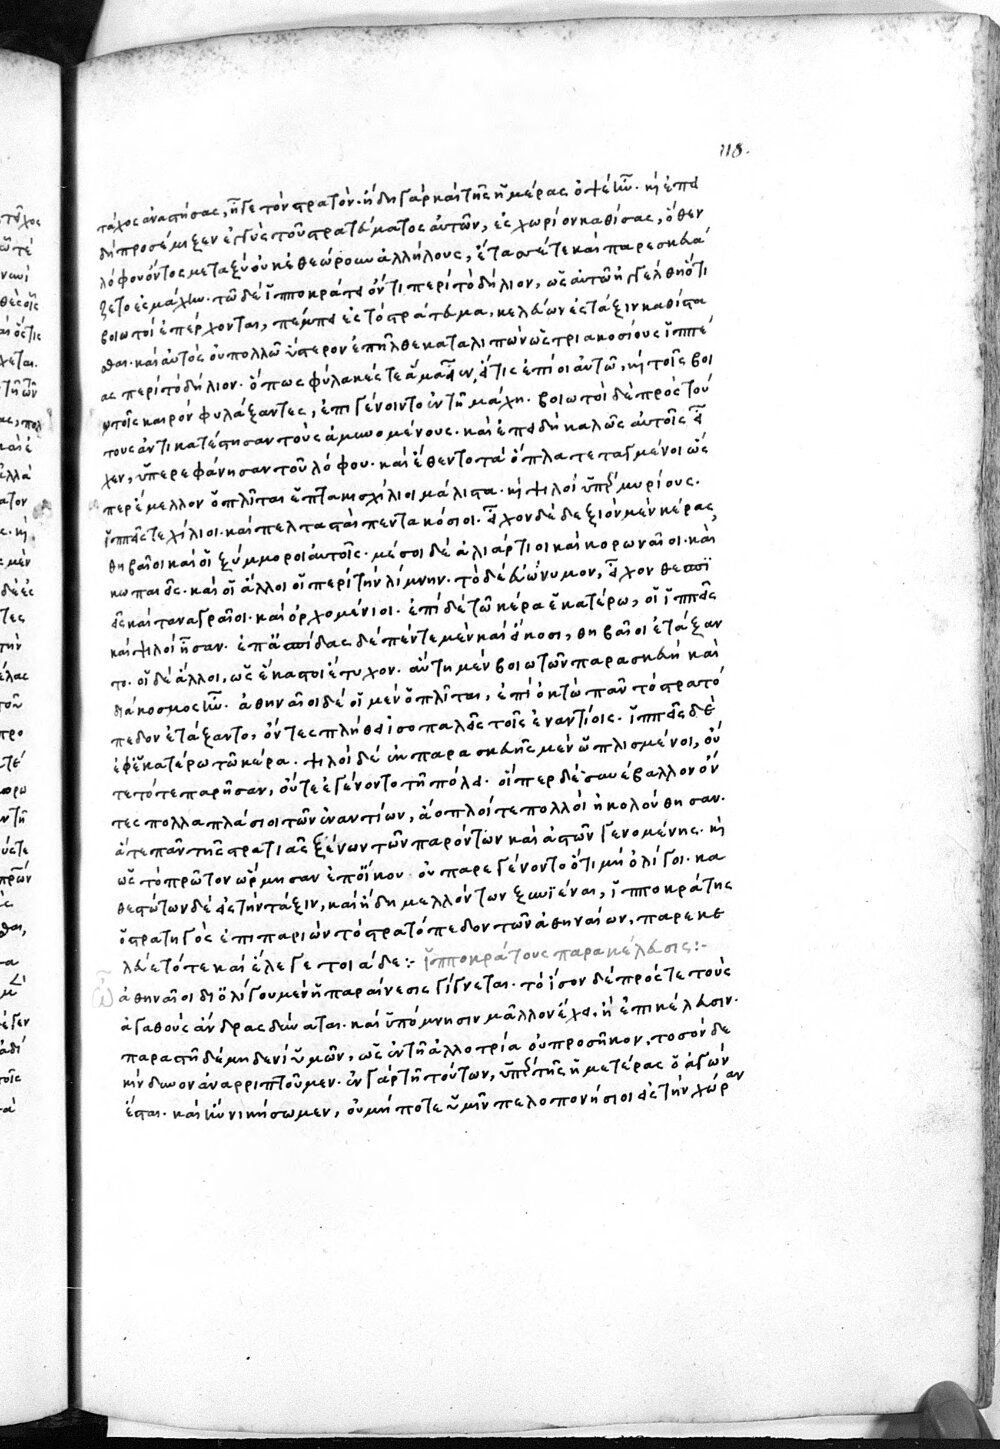 118.
τάχος ἀναστήσας, ἦγε τὸν στρατόν· ἤδη γὰρ καὶ τῆς ἡμέρας ὀψὲ ἦν· καὶ ἐπει
δὴ προσέμιξεν ἐγγὺς τοῦ στρατεύματος αὐτῶν, ἐς χωρίον καθίσας, ὅθεν
λόφου ὄντος μεταξὺ οὐκ ἐθεώρουν ἀλλήλους, ἔτασσέ τε καὶ παρεσκευά
ζετο ἐς μάχην· τῶ δὲ ἱπποκράτει ὄντι περὶ τὸ δήλιον, ὡς αὐτῶ ἠγγέλθη ὅτι
βοιωτοὶ ἐπέρχονται, πέμπει ἐς τὸ στράτευμα, κελεύων ἐς τάξιν καθίστα
σθαι· καὶ αὐτὸς οὐ πολλῶ ὕστερον ἐπῆλθε καταλιπὼν ὡς τριακοσίους ἱππέ
ας περὶ τὸ δήλιον· ὅπως φύλακές τε ἅμα εἶεν, εἴ τις ἐπίοι αὐτῶ, καὶ τοῖς βοι
ωτοῖς καιρὸν φυλάξαντες, ἐπιγένοιντο ἐν τῆ μάχη· βοιωτοὶ δὲ πρὸς τού
τους ἀντικατέστησαν τοὺς ἀμυνομένους· καὶ ἐπειδὴ καλῶς αὐτοῖς εἶ
χεν, ὑπερεφάνησαν τοῦ λόφου· καὶ ἔθεντο τὰ ὅπλα τεταγμένοι ὥς
περ ἔμελλον ὁπλῖται ἑπτακισχίλιοι μάλιστα· καὶ ψιλοὶ ὑπὲρ μυρίους·
ἱππεῖς τε χίλιοι· καὶ πελτασταὶ πεντακόσιοι· εἶχον δὲ δεξιὸν μὲν κέρας,
θηβαῖοι καὶ οἱ ξύμμοροι αὐτοῖς· μέσοι δὲ ἁλιάρτιοι καὶ κορωναῖοι· καὶ
κωπαιεῖς· καὶ οἱ ἄλλοι οἱ περὶ τὴν λίμνην· τὸ δὲ εὐώνυμον, εἶχον θεσπι
εῖς καὶ ταναγραῖοι· καὶ ὀρχομένιοι· ἐπὶ δὲ τῶ κέρα ἑκατέρω, οἱ ἱππεῖς
καὶ ψιλοὶ ἦσαν· ἐπ' ἀσπίδας δὲ πέντε μὲν καὶ εἴκοσι, θηβαῖοι ἐτάξαν
το· οἱ δὲ ἄλλοι, ὡς ἕκαστοι ἔτυχον· αὕτη μὲν βοιωτῶν παρασκευὴ καὶ
διάκοσμος ἦν· ἀθηναῖοι δὲ οἱ μὲν ὁπλῖται, ἐπὶ ὀκτὼ πᾶν τὸ στρατό
πεδον ἐτάξαντο, ὄντες πλήθει ἰσοπαλεῖς τοῖς ἐναντίοις· ἱππεῖς δὲ
ἐφ' ἑκατέρω τῶ κέρα· ψιλοὶ δὲ ἐκ παρασκευῆς μὲν ὡπλισμένοι, οὔ
τε τότε παρῆσαν, οὔτε ἐγένοντο τῆ πόλει· οἵπερ δὲ συνέβαλλον ὄν
τες πολλαπλάσιοι τῶν ἐναντίων, ἄοπλοί τε πολλοὶ ἠκολούθησαν·
ἅτε πανστρατιᾶς ξένων τῶν παρόντων καὶ ἀστῶν γενομένης· καὶ
ὡς τὸ πρῶτον ὥρμησαν ἐπ' οἴκου· οὐ παρεγένοντο ὅτι μὴ ὀλίγοι· κα
θεστώτων δὲ εἰς τὴν τάξιν, καὶ ἤδη μελλόντων ξυνϊέναι, ἱπποκράτης
ὁ στρατηγὸς ἐπιπαριὼν τὸ στρατόπεδον τῶν ἀθηναίων, παρεκε
λεύετό τε καὶ ἔλεγε τοιάδε:- ἱπποκράτους παρακέλευσις:-
ὦ ἀθηναῖοι δι' ὀλίγου μὲν ἡ παραίνεσις γίγνεται· τὸ ἴσον δὲ πρός τε τοὺς
ἀγαθοὺς ἄνδρας δύναται· καὶ ὑπόμνησιν μᾶλλον ἔχει, ἢ ἐπικέλευσιν·
παραστῆ δὲ μηδενὶ ὑμῶν, ὡς ἐν τῆ ἀλλοτρία οὐ προσῆκον, τοσόνδε
κίνδυνον ἀναρριπτοῦμεν· ἐν γὰρ τῆ τούτων, ὑπὲρ τῆς ἡμετέρας ὁ ἀγὼν
ἔσται· καὶ ἢν νικήσωμεν, οὐ μή ποτε ὑμῖν πελοπονήσιοι εἰς τὴν χώραν